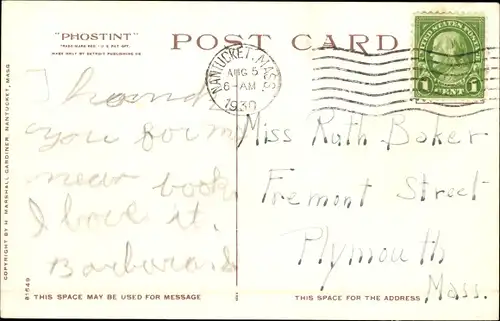 "PHOSTINT"
TRADE MARK REG. U.S. PAT. OFF.
MADE ONLY BY DETROIT PUBLISHING CO.
POST CARD
NANTUCKET, MASS
AUG 5
6-AM
1930
UNITED STATES POSTAGE
1 CENT 1
I
you for m
near book
I love it.
Barbara
Miss Ruth Baker
Fremont Street
Plymouth
Mass.
COPYRIGHT BY H. MARSHALL GARDINER, NANTUCKET, MASS
81549
THIS SPACE MAY BE USED FOR MESSAGE
THIS SPACE FOR THE ADDRESS